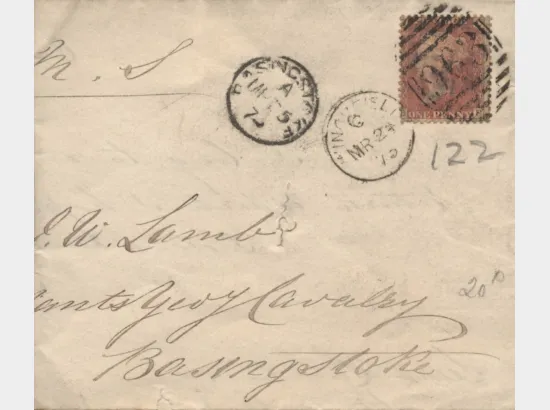 M. S
BASINGSTOKE
A
MR 25
72
G
MR 24
72
ONE PENNY
122
J. W. Lamb
Hants Yeo'y Cavalry
20p
Basingstoke